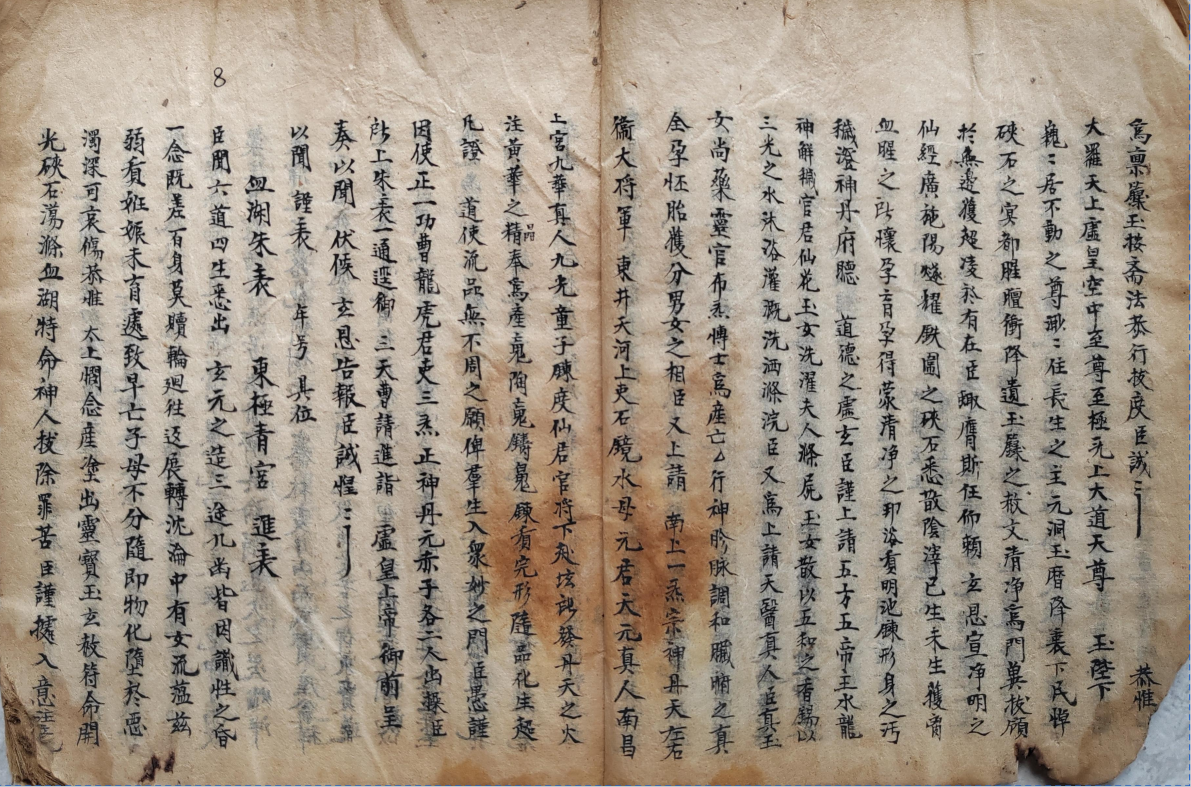 為禀籙玉棪斋法恭行拔度臣誠〻 恭惟
大羅天上虛皇空中至尊至極无上大道天尊 玉陛下
巍〻居不動之尊 〻住長生之主元洞玉曆降衷下民悼
硤石之冥都腥膻衝降遺玉籙之救文清净為門冀拔顧
於無邊獲超凌於有在臣 膺斯任仰賴 玄恩宣净明之
仙經廣施陽燧耀鉄圍之硤石悉散陰滓已生未生獲脊
血腥之 懷孕育孕得蒙清净之 洛育明池鍊形身之污
穢澄神丹府聽 道德之虛玄臣謹上請五方五帝玉水龍
神解穢官君仙花玉女洗濯夫人滌屍玉女散以五和之香錫以
三光之水沐浴灌溉洗洒滌浣臣又為上請天醫真人臣真玉
女尚藥靈官布炁博士為產亡厶行神 脉調和臟腑之真
全孕怀胎獲分男女之相臣又上請 南上一炁宗神丹天左右
衛大将軍東井天河上吏石鏡水母元君天元真人南昌
上宮九華真人九光童子鍊度仙居官将下 垓 發丹天之火
注黃華之精奉為產䰟陶䰟鑄鬼鍊育完形隨品化生起
晶
凡證 道使流品無不周之願俾羣生入眾妙之門臣愚謹
因使正一功曹龍虎君吏三炁正神丹元赤子各二人出操臣
所上朱表一通逕御 三天曹請進詣 虛皇上帝御前呈
奏以聞伏候 玄恩告報臣誠惶〻
以聞 謹表 年号 具位
血湖朱表 東極青宮 進表
8
臣聞六道四生悉出 玄元之造三途九幽皆因識性之昏
一念既差百身莫贖輪廻往返展轉沈淪中有女流蕰茲
弱看姙娠未育處致早亡子母不分隨即物化墮於惡
濁深可哀傷恭惟 太上憫念產塗出靈寶玉玄赦符命開
光硤石蕩滌血湖特命神人拔除罪苦臣謹據入意